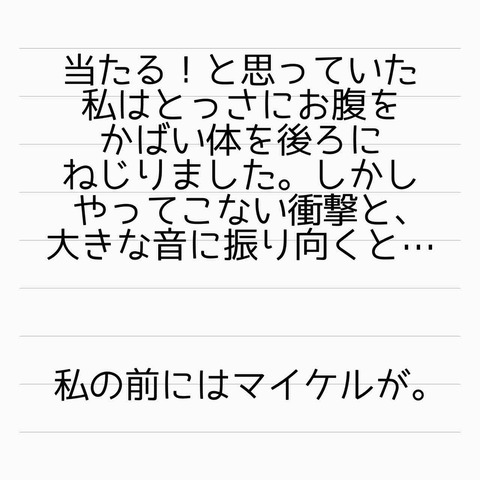 当たる！と思っていた
私はとっさにお腹を
かばい体を後ろに
ねじりました。しかし
やってこない衝撃と、
大きな音に振り向くと…
私の前にはマイケルが。